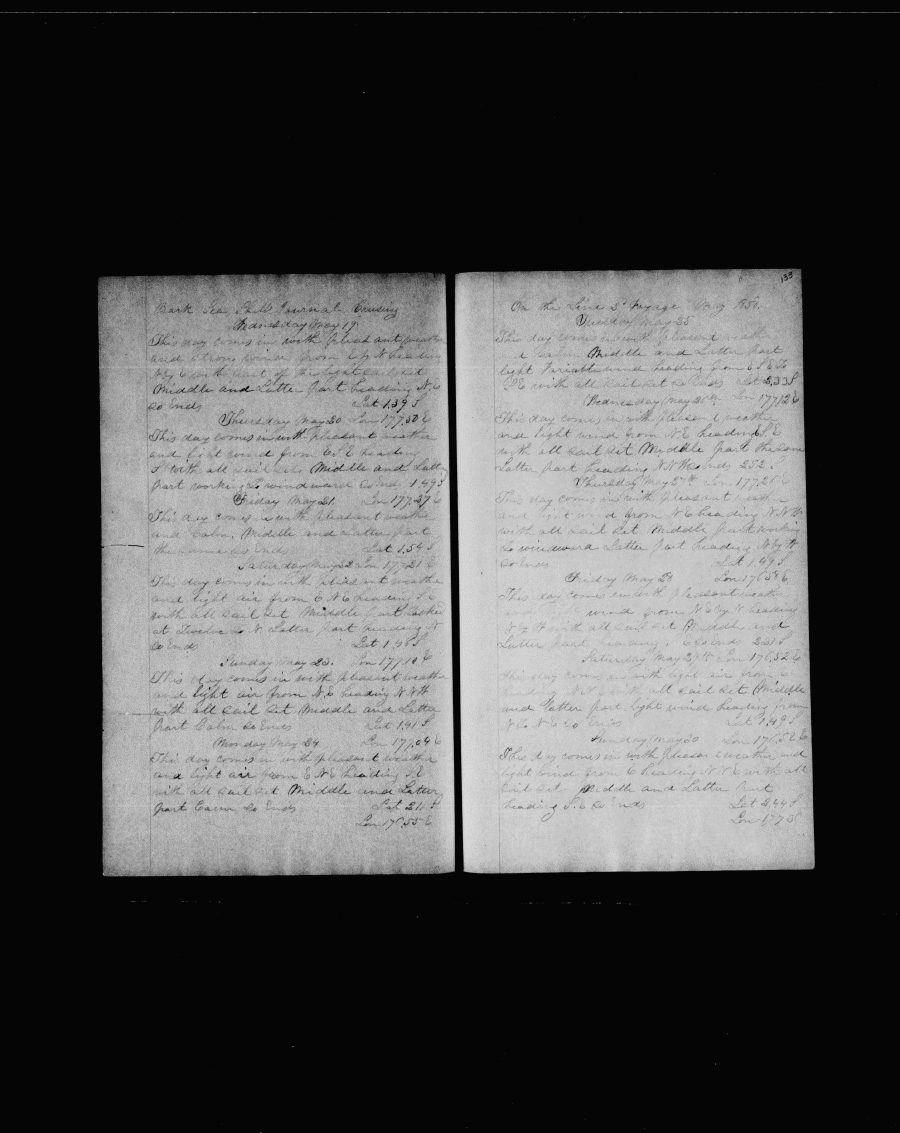 Bark Sea Shell Journal Cruising
Wednesday May 19
This day comes in with pleasant weather
and strong wind from E by N heading
N by E with part of the light sail set
Middle and Latter part heading N.E
So Ends Lat 1,39 S
Thursday May 20 Lon 177,50 E
This day comes in with pleasant weather
and light wind from E.S.E heading
with all sail set Middle and Latter
part working to windward So Ends 1,49 S
Friday May 21. Lon 177,27 E
This day comes in with pleasant weather
and Calm, Middle and Latter part
the same so Ends Lat 1,54 S
Saturday May 22 Lon 177,21 E
This day comes in with pleasant weather
and light air from E N E heading S.E
with all sail set Middle part tacked
at Twelve to N Latter part heading N
So Ends Lat 1,48 S
Sunday May 23. Lon 177,10 E
This day comes in with pleasant weather
and light air from N.E heading N N W
with all sail set Middle and Latter
part Calm So Ends Lat 1,41 S
Monday May 24 Lon 177,04 E
This day comes in with pleasant weather
and light air from E N E heading S.E
with all sail set Middle and Latter
part Calm So Ends Lat 2,11 S
Lon 176,55 E
133
On the Line Voyage May
Tuesday May 25
This day comes in with pleasant weather
Calm Middle and Latter part
light Variable wind heading from
with all sail set So Ends Lat 2,33 S
Wednesday May 26th Lon 177,12 E
This day comes in with pleasant weather
and light wind from N.E heading S E
with all sail set Middle part the same
Latter part heading N N W So Ends 2,52 S
Thursday May 27th Lon 177,26 E
This day comes in with pleasant weather
and light wind from N E heading N.N W
with all sail set Middle part working
to windward Latter part heading N by W
So Ends Lat 1,49 S
Friday May 28 Lon 176,58 E
This day comes in with pleasant weather
wind from N E by N heading
N by W with all sail set Middle and
Latter part heading So Ends 2,51 S
Saturday May 29th Lon 176,52 E
This day comes in with light air from
heading with all sail set Middle
and Latter part light wind heading from
So Ends Lat 1,49 S
Sunday May 30 Lon 176,52 E
This day comes in with pleasant weather and
light wind from E heading N.N E with all
Sail Set Middle and Latter part
heading S.E So Ends Lat 2,44 S
Lon 177